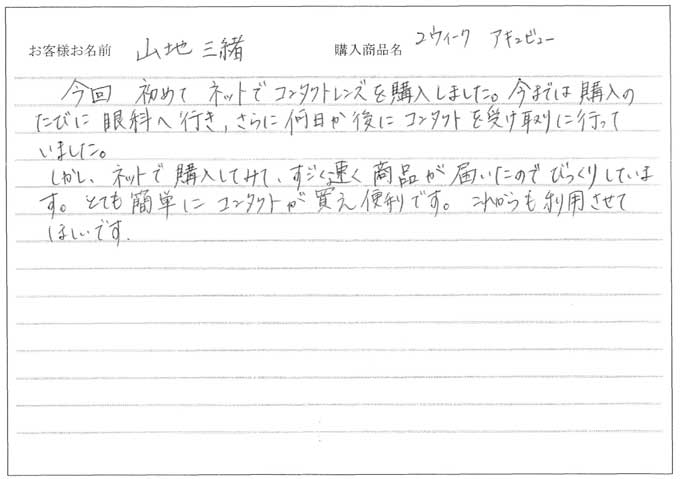 お客様お名前 山地 三緒 購入商品名 2ウィーク アキュビュー
今回 初めて ネットで コンタクトレンズを購入しました。今までは 購入の
たびに 眼科へ行き、さらに 何日か後に コンタクトを受け取りに行って
いました。
しかし、ネットで 購入してみて、すごく速く 商品が 届いたので びっくりしていま
す。とても 簡単に コンタクトが 買え 便利です。 これからも 利用させて
ほしいです.